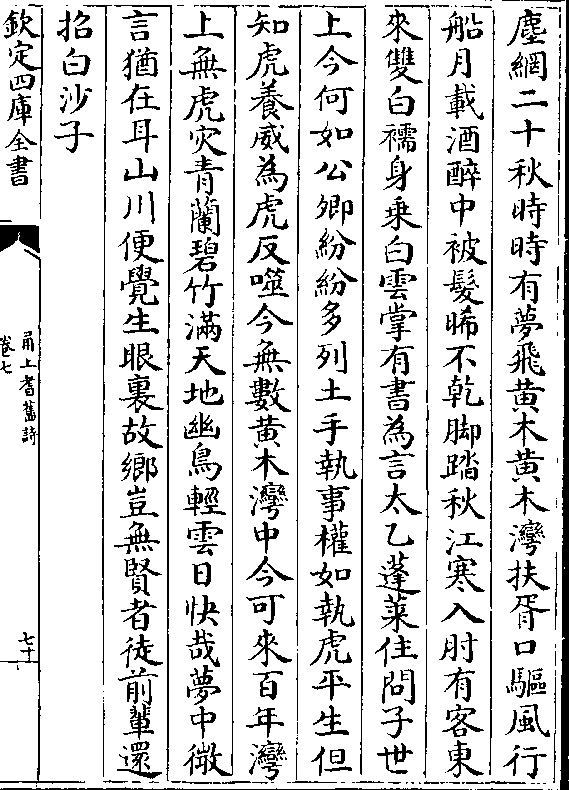 塵網二十秋時時有夢飛黄木黄木灣扶胥口驅風行
船月載酒醉中被髮晞不乾脚踏秋江寒入肘有客東
來雙白襦身乗白雲掌有書為言太乙蓬萊住問子世
上今何如公卿紛紛多列土手執事權如執虎平生但
知虎養威為虎反噬今無數黄木灣中今可來百年灣
上無虎灾青蘭碧竹滿天地幽鳥輕雲日快哉夢中微
言猶在耳山川便覺生眼裏故鄉豈無賢者徒前輩還
招白沙子
欽定四庫全書
甬上耆舊詩
卷七
七十